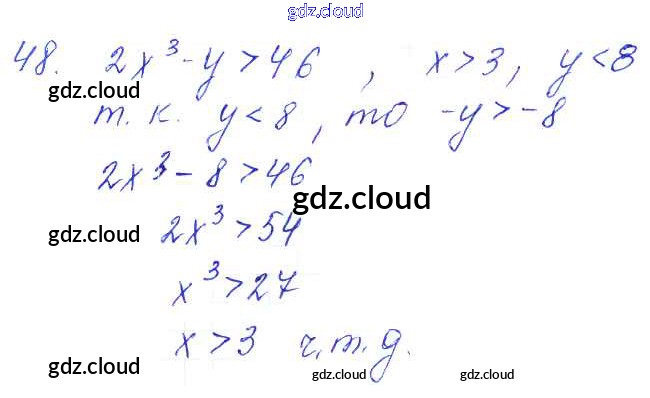 gdz.cloud
48. 2x³-y>46, x>3, y<8
gdz.cloud
т.к. y<8, то -y>-8
2x³-8>46
gdz.cloud
gdz.cloud 2x³>54
x³>27
x>3 ч.т.д.
gdz.cloud
gdz.cloud gdz.cloud